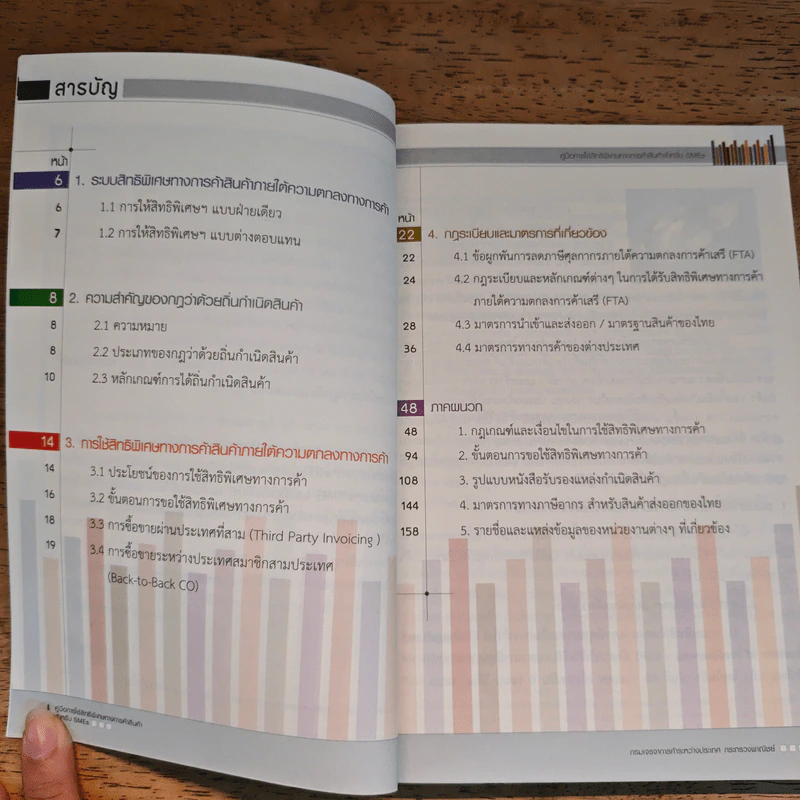 สารบัญ
หน้า
6 1. ระบบสิทธิพิเศษทางการค้าสินค้าภายใต้ความตกลงทางการค้า
6 1.1 การให้สิทธิพิเศษฯ แบบฝ่ายเดียว
7 1.2 การให้สิทธิพิเศษฯ แบบต่างตอบแทน
8 2. ความสำคัญของกฎว่าด้วยถิ่นกำเนิดสินค้า
8 2.1 ความหมาย
8 2.2 ประเภทของกฎว่าด้วยถิ่นกำเนิดสินค้า
10 2.3 หลักเกณฑ์การได้ถิ่นกำเนิดสินค้า
14 3. การใช้สิทธิพิเศษทางการค้าสินค้าภายใต้ความตกลงทางการค้า
14 3.1 ประโยชน์ของการใช้สิทธิพิเศษทางการค้า
16 3.2 ขั้นตอนการขอใช้สิทธิพิเศษทางการค้า
18 3.3 การซื้อขายผ่านประเทศที่สาม (Third Party Invoicing )
19 3.4 การซื้อขายระหว่างประเทศสมาชิกสามประเทศ
(Back-to-Back CO)
คู่มือการใช้สิทธิพิเศษทางการค้าสินค้า
สำหรับ SMEs
คู่มือการใช้สิทธิพิเศษทางการค้าสินค้าสำหรับ SMEs
หน้า
22 4. กฎระเบียบและมาตรการที่เกี่ยวข้อง
22 4.1 ข้อผูกพันการลดภาษีศุลกากรภายใต้ความตกลงการค้าเสรี (FTA)
24 4.2 กฎระเบียบและหลักเกณฑ์ต่างๆ ในการได้รับสิทธิพิเศษทางการค้า
ภายใต้ความตกลงการค้าเสรี (FTA)
28 4.3 มาตรการนำเข้าและส่งออก / มาตรฐานสินค้าของไทย
36 4.4 มาตรการทางการค้าของต่างประเทศ
48 ภาคผนวก
48 1. กฎเกณฑ์และเงื่อนไขในการใช้สิทธิพิเศษทางการค้า
94 2. ขั้นตอนการขอใช้สิทธิพิเศษทางการค้า
108 3. รูปแบบหนังสือรับรองแหล่งกำเนิดสินค้า
144 4. มาตรการทางภาษีอากร สำหรับสินค้าส่งออกของไทย
158 5. รายชื่อและแหล่งข้อมูลของหน่วยงานต่างๆ ที่เกี่ยวข้อง
กรมเจรจาการค้าระหว่างประเทศ กระทรวงพาณิชย์